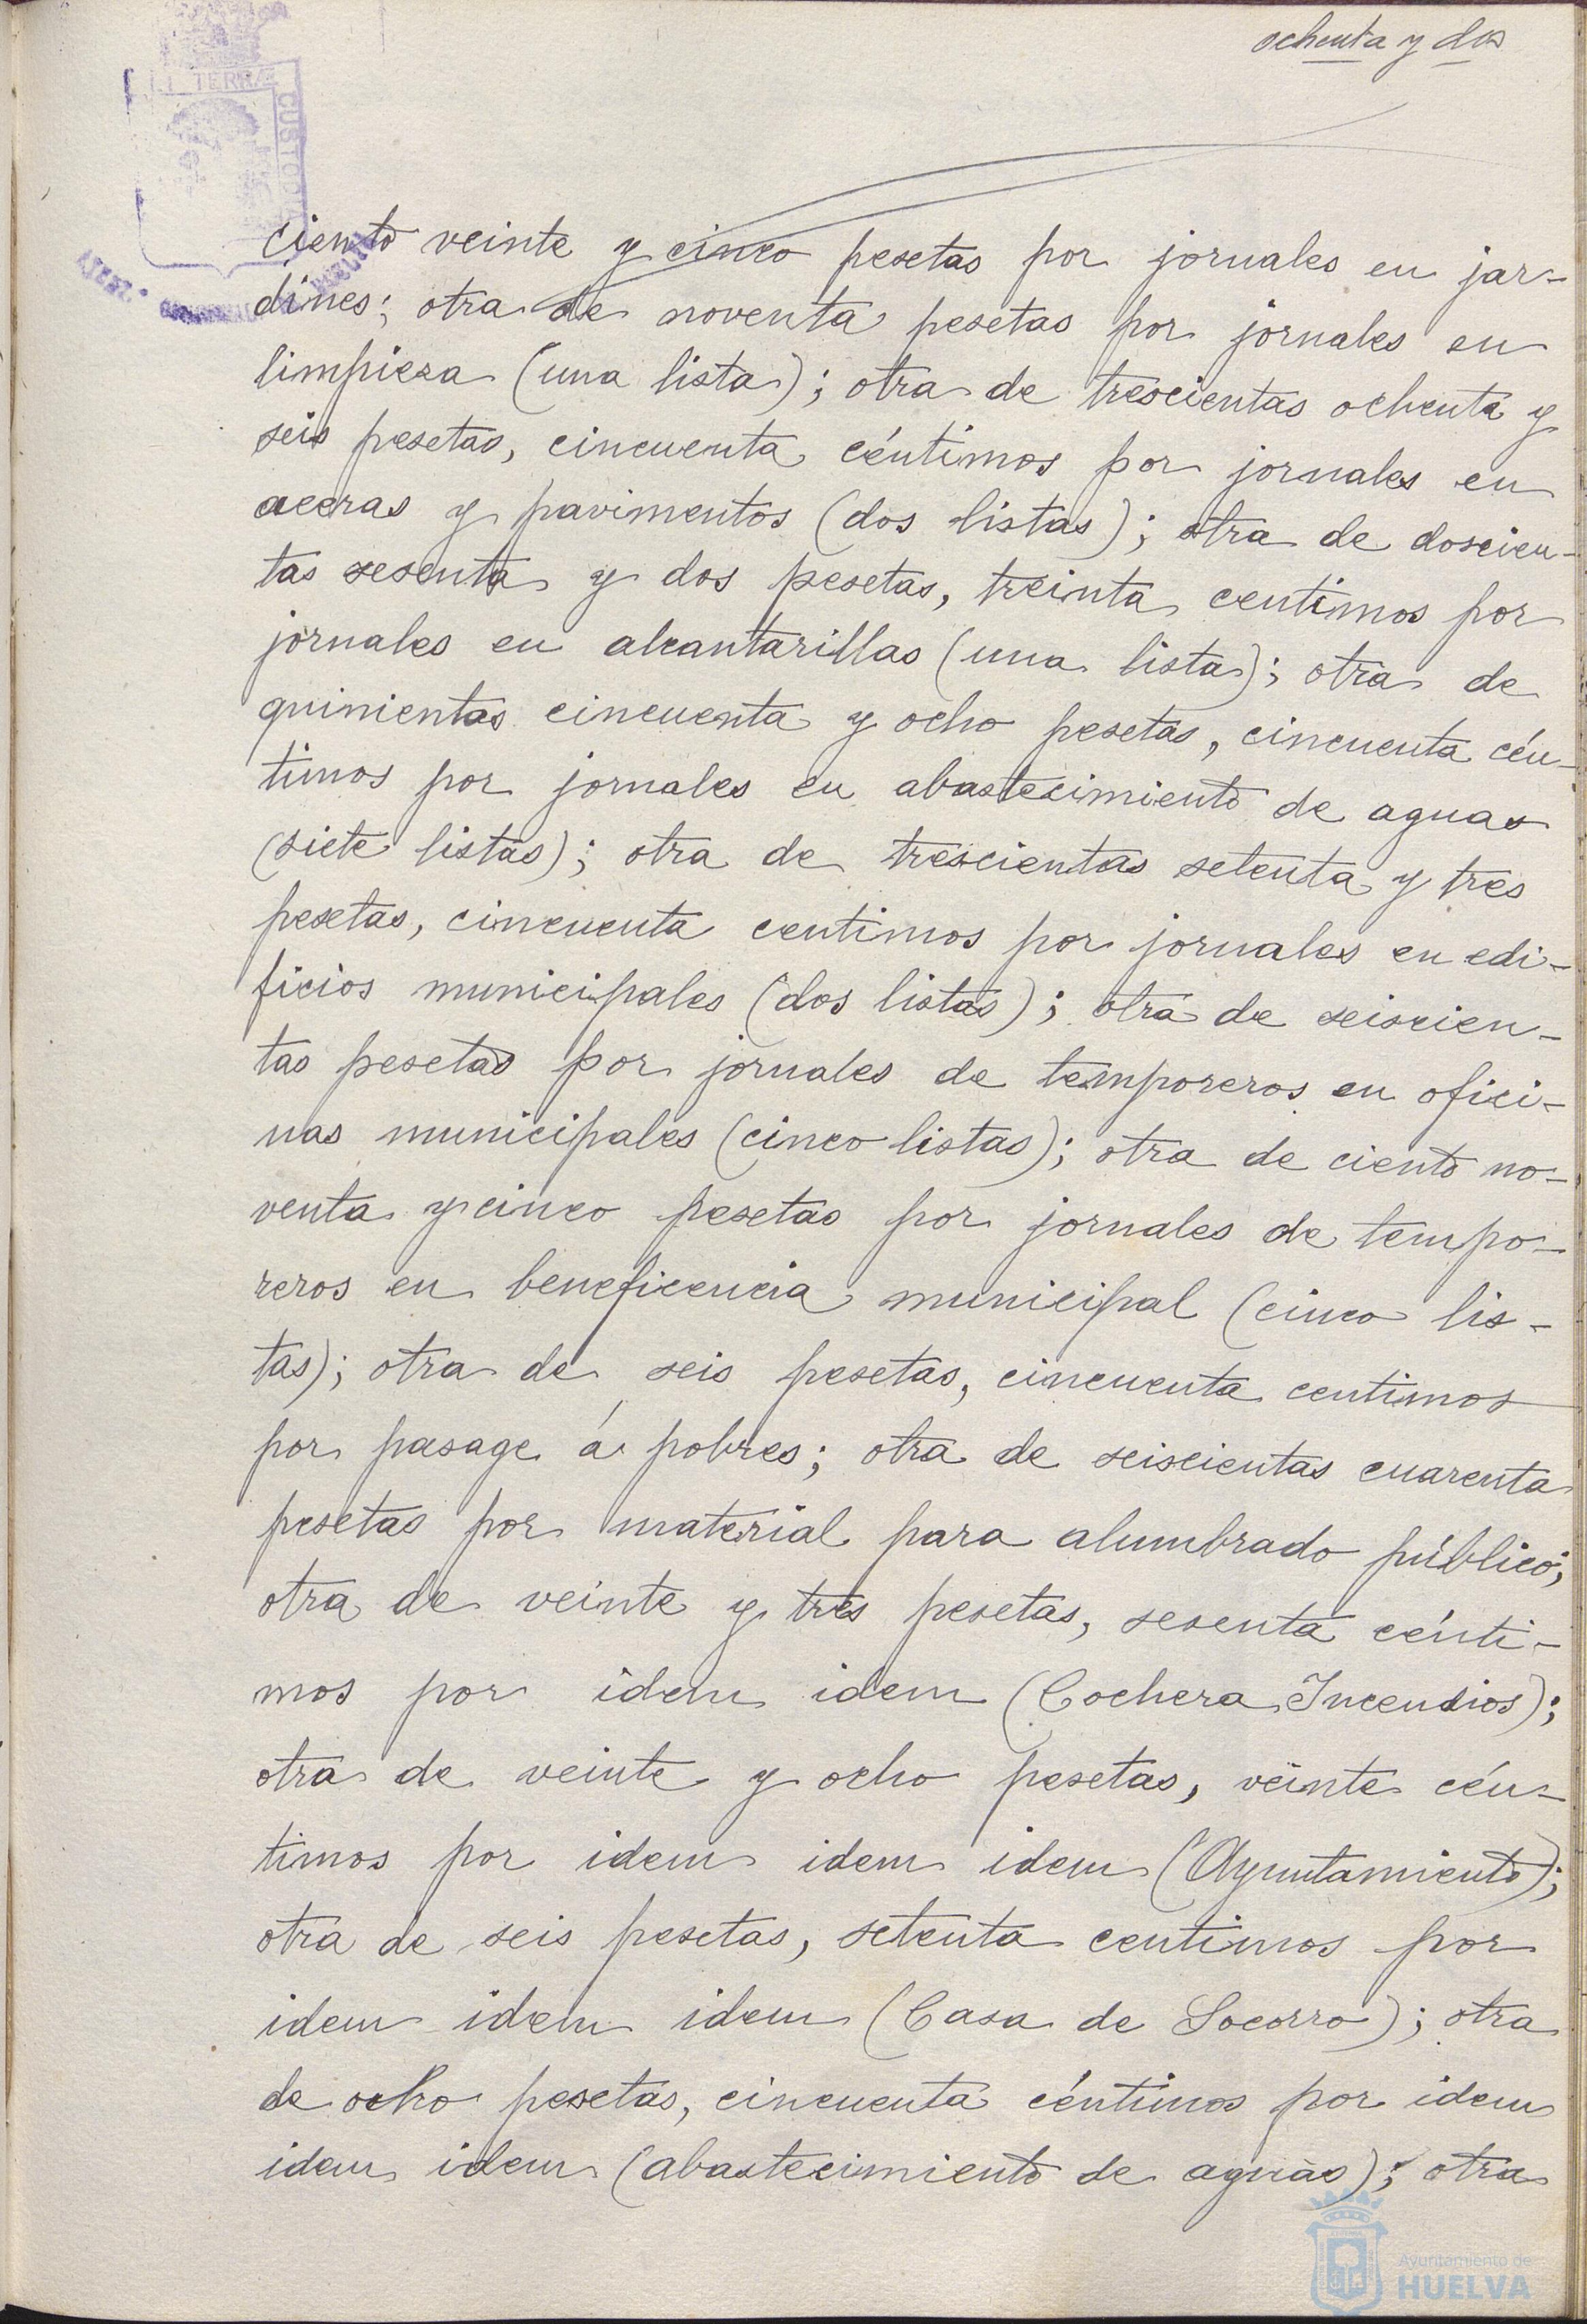 ochenta y dos
TERRÆ
CUSTOD
ciento veinte y cinco pesetas por jornales en jar-
dines; otra de noventa pesetas por jornales en
limpieza (una lista); otra de trescientas ochenta y
seis pesetas, cincuenta céntimos por jornales en
aceras y pavimentos (dos listas); otra de doscien-
tas sesenta y dos pesetas, treinta centimos por
jornales en alcantarillas (una lista); otra de
quinientas cincuenta y ocho pesetas, cincuenta cén-
timos por jornales en abastecimiento de aguas
(siete listas); otra de trescientas setenta y tres
pesetas, cincuenta centimos por jornales en edi-
ficios municipales (dos listas); otra de seiscien-
tas pesetas por jornales de temporeros en ofici-
nas municipales (cinco listas); otra de ciento no-
venta y cinco pesetas por jornales de tempo-
reros en beneficencia municipal (cinco lis-
tas); otra de seis pesetas, cincuenta centimos
por pasage á pobres; otra de seiscientas cuarenta
pesetas por material para alumbrado público;
otra de veinte y tres pesetas, sesenta cénti-
mos por idem idem (Cochera Incendios);
otra de veinte y ocho pesetas, veinte cén-
timos por idem idem idem (Ayuntamiento);
otra de seis pesetas, setenta centimos por
idem idem idem (Casa de Socorro); otra
de ocho pesetas, cincuenta céntimos por idem
idem idem (abastecimiento de aguas); otra
Ayuntamiento de
HUELVA